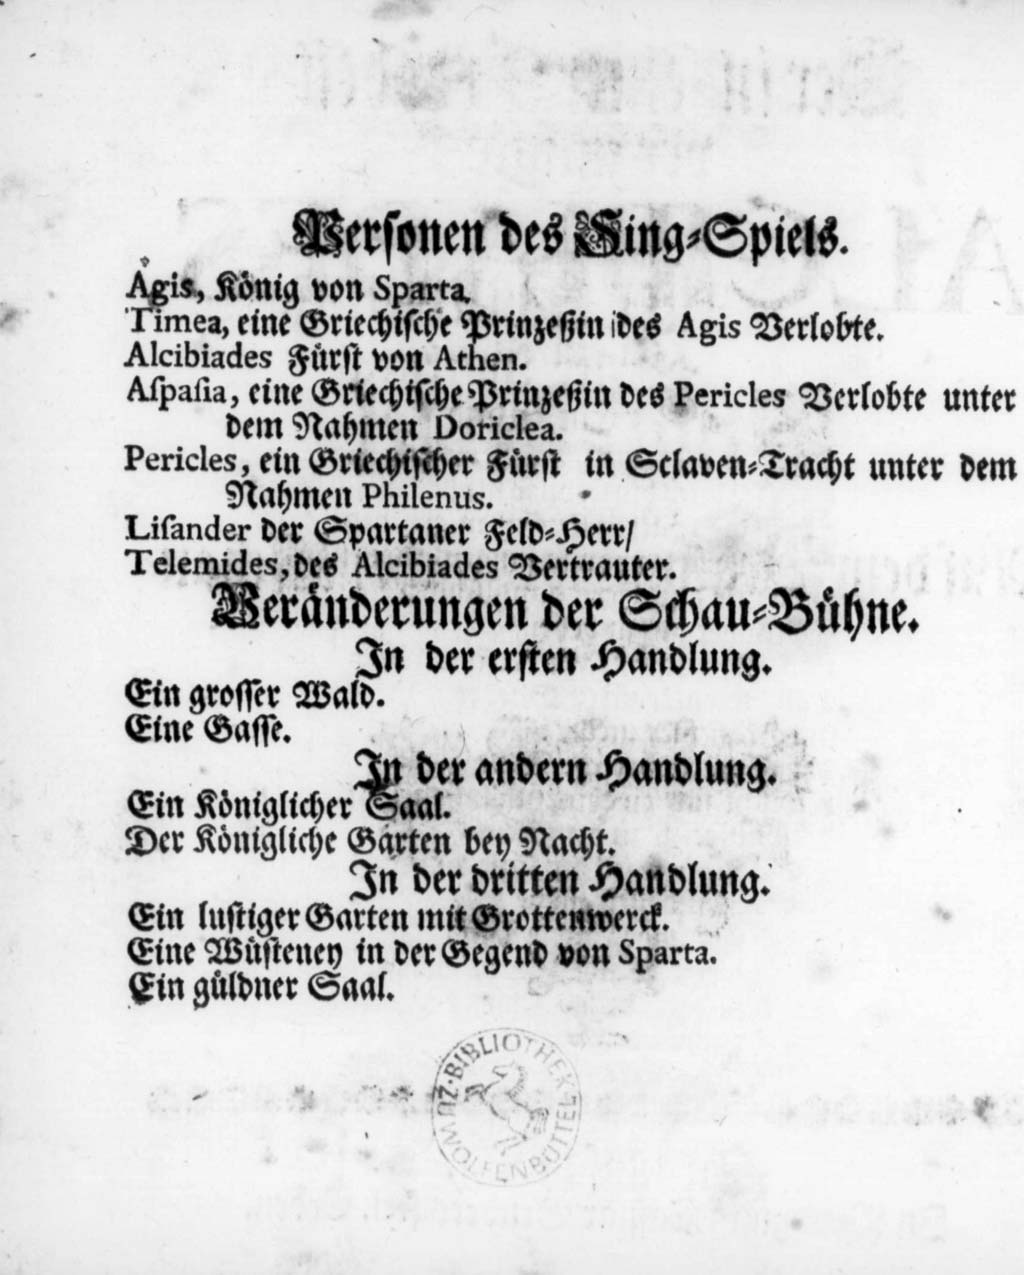 Personen des Sing-Spiels.
Agis, König von Sparta.
Timea, eine Griechische Prinzeßin des Agis Verlobte.
Alcibiades Fürst von Athen.
Aſpaſia, eine Griechische Prinzeßin des Pericles Verlobte unter
dem Nahmen Doriclea.
Pericles, ein Griechischer Fürst in Sclaven-Tracht unter dem
Nahmen Philenus.
Liſander der Spartaner Feld-Herr/
Telemides, des Alcibiades Vertrauter.
Veränderungen der Schau-Bühne.
In der ersten Handlung.
Ein grosser Wald.
Eine Gasse.
In der andern Handlung.
Ein Königlicher Saal.
Der Königliche Garten bey Nacht.
In der dritten Handlung.
Ein lustiger Garten mit Grottenwerck.
Eine Wüsteney in der Gegend von Sparta.
Ein güldner Saal.
BIBLIOTHEK
ZU WOLFENBÜTTEL